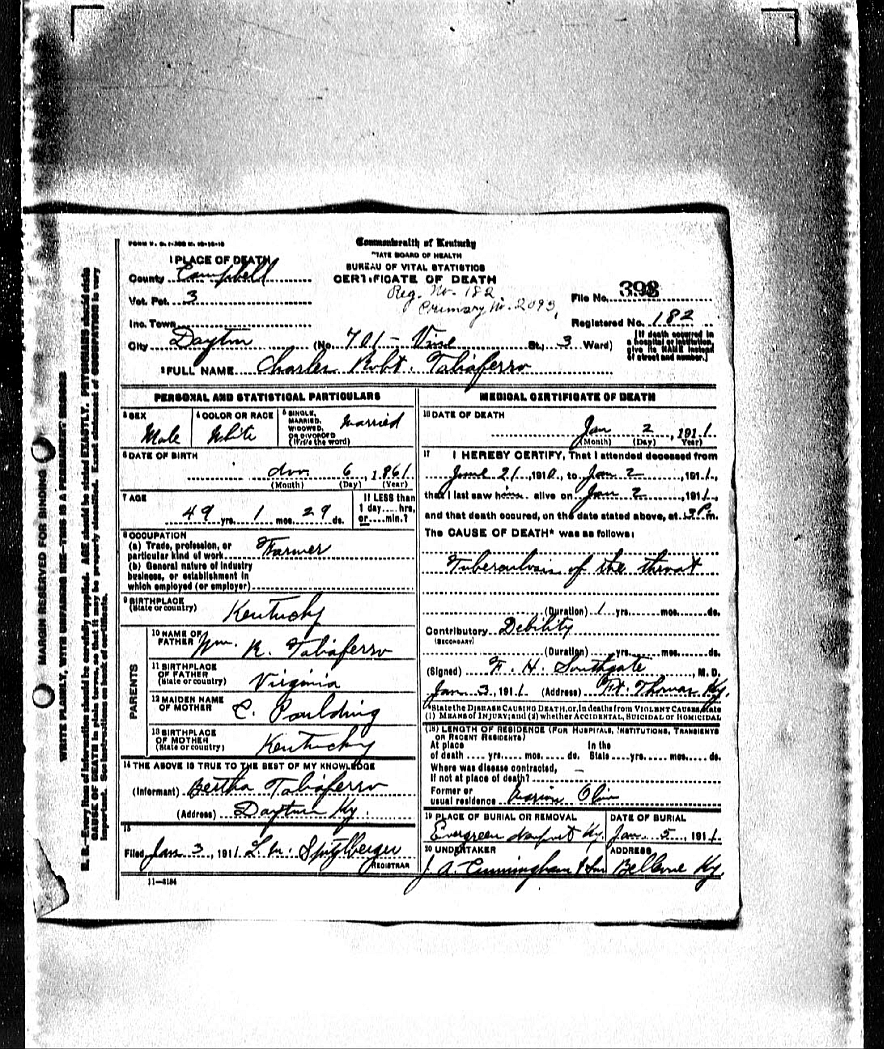 FORM V. S. 1
Commonwealth of Kentucky
STATE BOARD OF HEALTH
BUREAU OF VITAL STATISTICS
CERTIFICATE OF DEATH
1 PLACE OF DEATH
County Campbell
Vot. Pct. 3
Inc. Town
City Dayton (No. 701 - Vine St., 3 Ward)
Reg. No. 182
Primary No. 2093
File No. 398
Registered No. 182
[If death occurred in a hospital or institution, give its NAME instead of street and number.]
2 FULL NAME Charles Robt. Taliaferro
PERSONAL AND STATISTICAL PARTICULARS
3 SEX Male
4 COLOR OR RACE White
5 SINGLE, MARRIED, WIDOWED, OR DIVORCED (Write the word) Married
6 DATE OF BIRTH
6, 1861
(Month) (Day) (Year)
7 AGE
49 yrs. 1 mos. 29 ds.
If LESS than 1 day....hrs, or....min.?
8 OCCUPATION
(a) Trade, profession, or particular kind of work Farmer
(b) General nature of industry business, or establishment in which employed (or employer)
9 BIRTHPLACE (State or country) Kentucky
PARENTS
10 NAME OF FATHER Wm. R. Taliaferro
11 BIRTHPLACE OF FATHER (State or country) Virginia
12 MAIDEN NAME OF MOTHER C. Paulding
13 BIRTHPLACE OF MOTHER (State or country) Kentucky
14 THE ABOVE IS TRUE TO THE BEST OF MY KNOWLEDGE
(Informant) Bertha Taliaferro
(Address) Dayton Ky.
15
Filed Jan 3, 1911 L. M. Spitzlberger
REGISTRAR
11-3184
MEDICAL CERTIFICATE OF DEATH
16 DATE OF DEATH
Jan 2, 1911
(Month) (Day) (Year)
17 I HEREBY CERTIFY, That I attended deceased from
June 21, 1910, to Jan 2, 1911,
that I last saw him alive on Jan 2, 1911,
and that death occured, on the date stated above, at 3 P m.
The CAUSE OF DEATH* was as follows:
Tuberculosis of the throat
(Duration) 1 yrs. mos. ds.
Contributory Debility
(SECONDARY)
(Duration) yrs. mos. ds.
(Signed) F. H. Southgate, M. D.
Jan 3, 1911 (Address) Ft. Thomas Ky.
*State the DISEASE CAUSING DEATH, or, in deaths from VIOLENT CAUSES, state (1) MEANS OF INJURY; and (2) whether ACCIDENTAL, SUICIDAL or HOMICIDAL
(18) LENGTH OF RESIDENCE (FOR HOSPITALS, INSTITUTIONS, TRANSIENTS OR RECENT RESIDENTS)
At place of death yrs. mos. ds. In the State yrs. mos. ds.
Where was disease contracted, if not at place of death? -
Former or usual residence
19 PLACE OF BURIAL OR REMOVAL
Evergreen Newport Ky.
DATE OF BURIAL
Jan. 5, 1911
20 UNDERTAKER
J. A. Cunningham & Son
ADDRESS
Bellevue Ky.
MARGIN RESERVED FOR BINDING
WRITE PLAINLY, WITH UNFADING INK—THIS IS A PERMANENT RECORD
N. B.—Every item of information should be carefully supplied. AGE should be stated EXACTLY. PHYSICIANS should state
CAUSE OF DEATH in plain terms, so that it may be properly classified. Exact statement of OCCUPATION is very
important. See instructions on back of certificate.